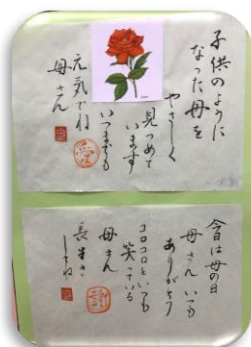 子供のように
なった母を
やさしく
見つめて
います
いつまでも
元気でね
母さん
愛
今日は母の日
母さんいつも
ありがとう
コロコロといつも
笑っている
母さん
長生き
してね